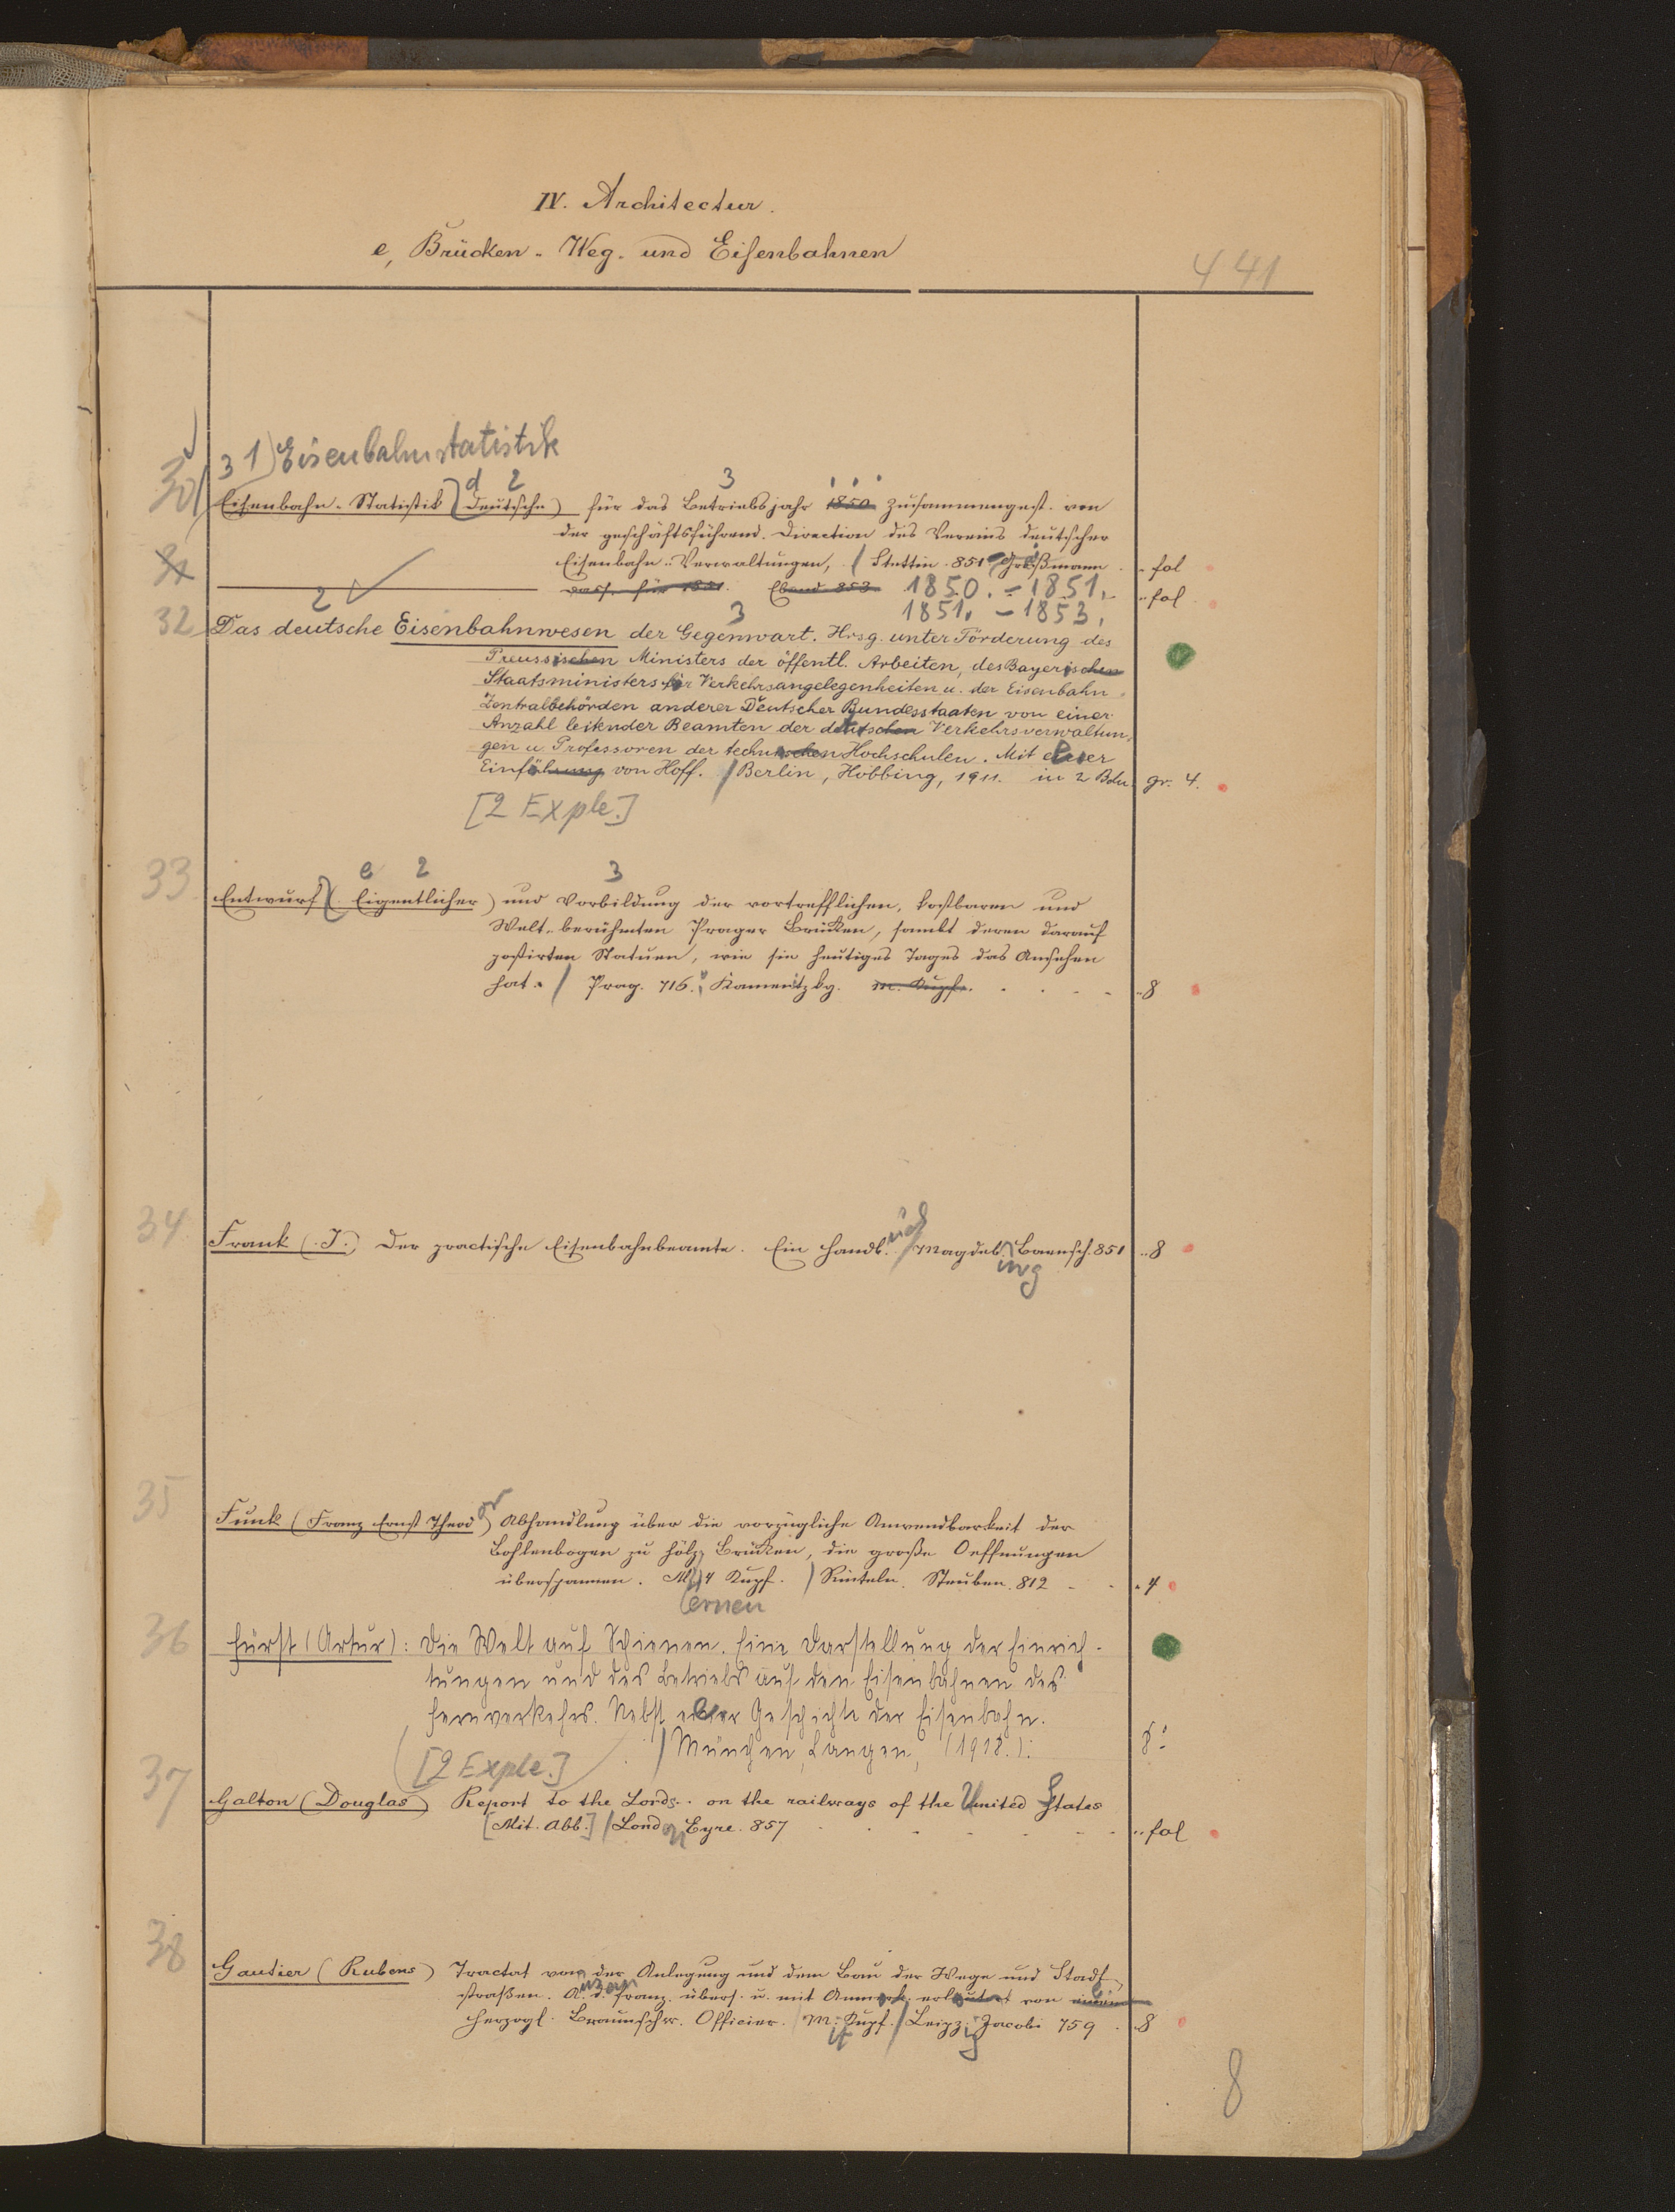 IV. Architectur.
e, Brücken- Weg- und Eisenbahnen
441
1) Eisenbahnstatistik
3 d 2 3
30 Eisenbahn-Statistik (Deutsche) für das Betriebsjahr 1850 zusammengest. von
der geschäftsführend. Direction des Vereins deutscher
Eisenbahn-Verwaltungen, / Stettin 851 Großmann fol
31 dass. für 1851. Ebend 853 1850. = 1851. fol
2 3 1851. - 1853.
32 Das deutsche Eisenbahnwesen der Gegenwart. Hrsg. unter Förderung des
Preussischen Ministers der öffentl. Arbeiten, des Bayerischen
Staatsministers für Verkehrsangelegenheiten u. der Eisenbahn-
Zentralbehörden anderer Deutscher Bundesstaaten von einer
Anzahl leitender Beamten der deutschen Verkehrsverwaltun-
gen u. Professoren der technischen Hochschulen. Mit einer
Einführung von Hoff. / Berlin, Hobbing, 1911. in 2 Bdn. gr. 4.
[2 Exple.]
e 2 3
33 Entwurf (Eigentlicher) und Vorbildung der vortrefflichen, kostbaren und
Welt-berühmten Prager Brücken, sambt deren darauf
postirten Statuen, wie sie heutiges Tages das Ansehen
hat. / Prag. 716. Kamenitzky. m. Kupf. 8
34 Frank (J.) Der practische Eisenbahnbeamte. Ein Handb. / Magdeb. Baensch. 851 8
urg
35 Funk (Franz Ernst Theodor) Abhandlung über die vorzügliche Anwendbarkeit der
Bohlenbogen zu hölz. Brücken, die große Oeffnungen
überspannen. M. 4 Kupf. / Rinteln. Steuben. 812 4
ernen
36 Fürst (Artur): Die Welt auf Schienen. Eine Darstellung der Einrich-
tungen und des Betriebs auf den Eisenbahnen des
Fernverkehrs. Nebst einer Geschichte der Eisenbahn.
/ München, Langen, (1918.). 8°
[2 Exple.]
37 Galton (Douglas) Report to the Lords.. on the railways of the United States
[Mit. Abb.] / London Eyre. 857 fol
38 Gautier (Rubens) Tractat von der Anlegung und dem Bau der Wege und Stadt-
straßen. A. d. Franz. übers. u. mit Anmerk. erläutert von einem
Herzogl. Braunschw. Officier. M. Kupf. / Leipz. Jacobi 759 8
it g
8